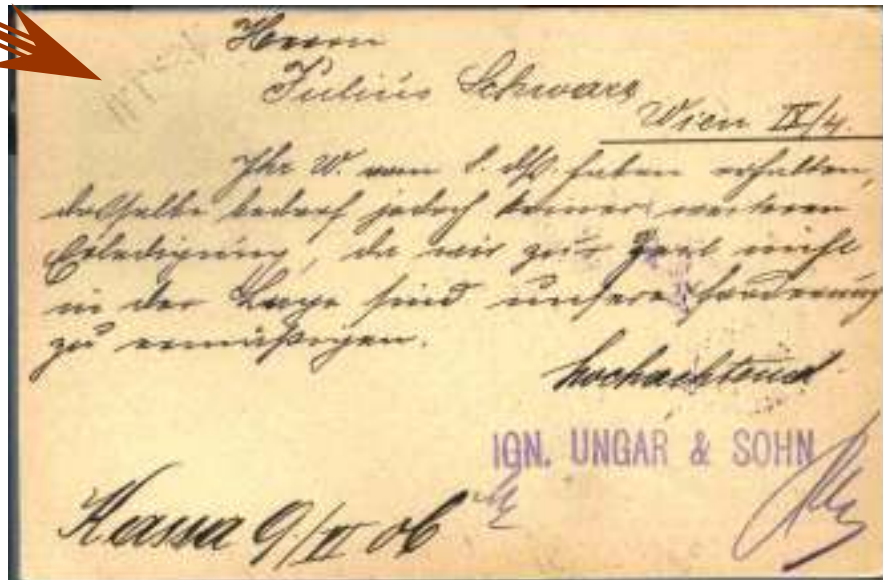 Herrn
Julius Schwarz
Wien IX/4.
Ihr W. vom 8. ds. haben erhalten,
dasselbe bedarf jedoch keiner weiteren
Erledigung, da wir zur Zeit nicht
in der Lage sind unsere Forderung
zu ermäßigen.
hochachtend
IGN. UNGAR & SOHN
Kassa 9/II 06